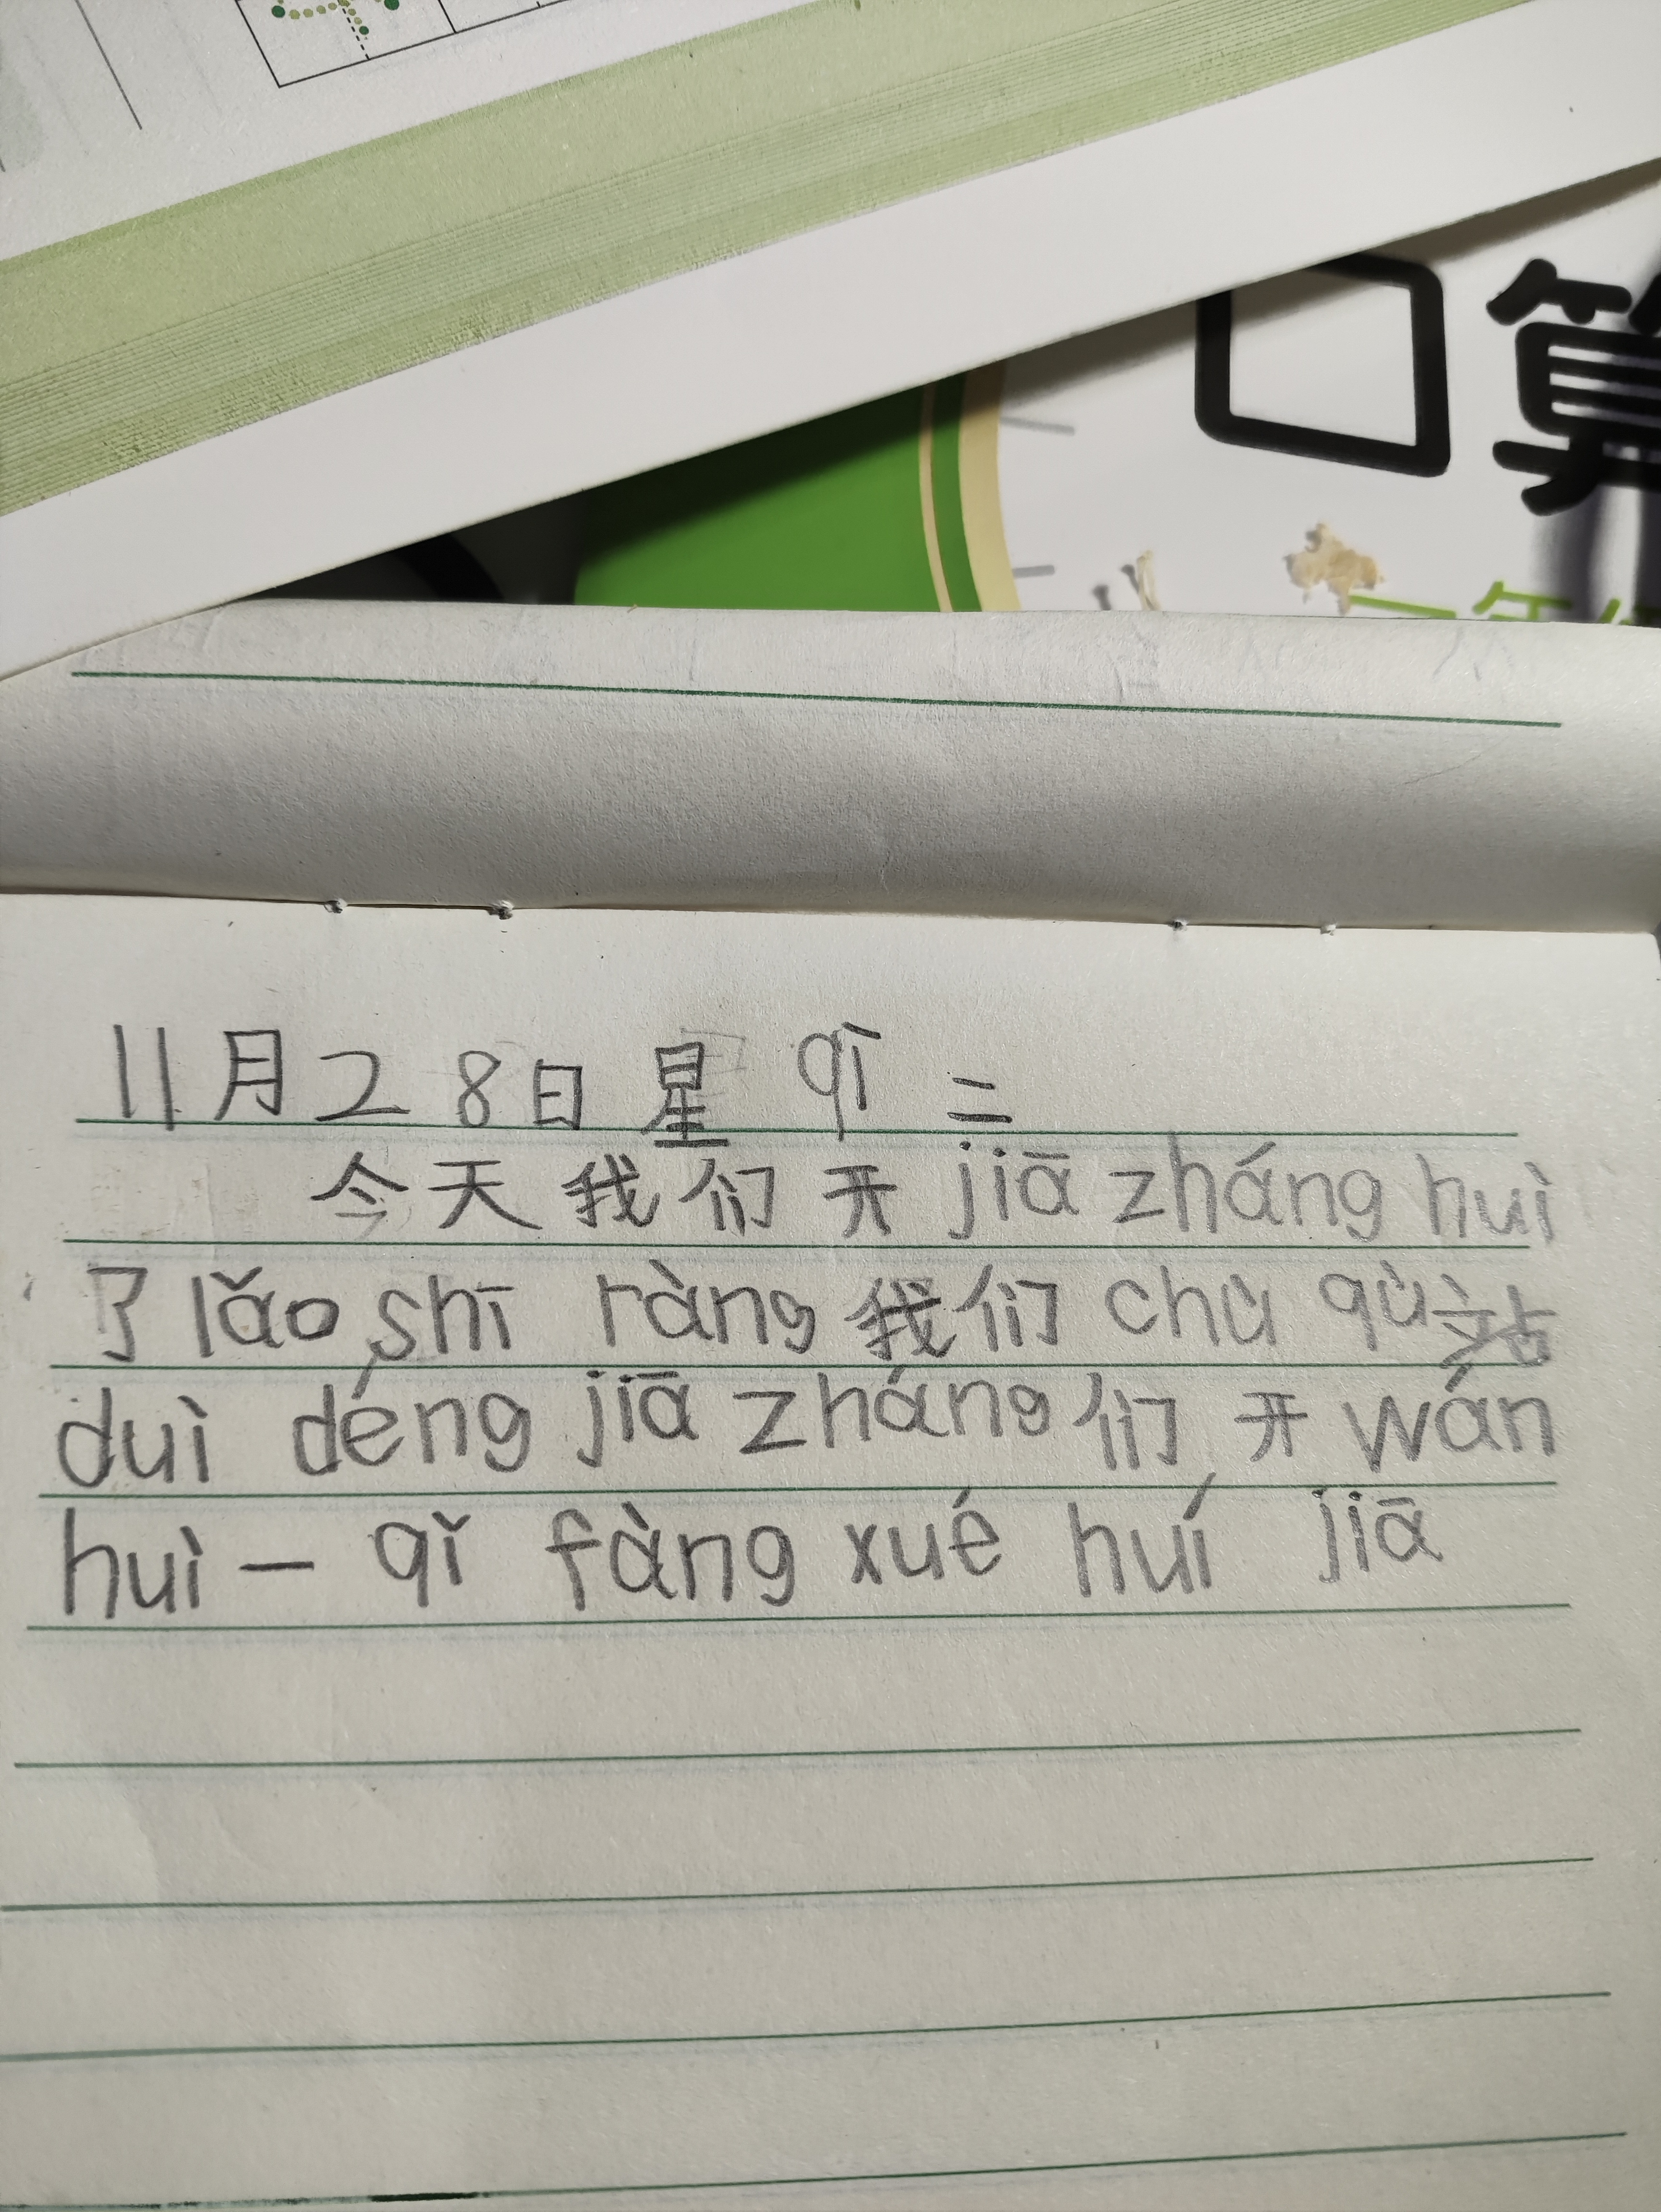 口算
11月28日星qī二
今天我们开jiā zháng huì
了lǎo shī ràng我们chū qù站
duì déng jiā zháng们开wán
huì一qǐ fàng xué huí jiā